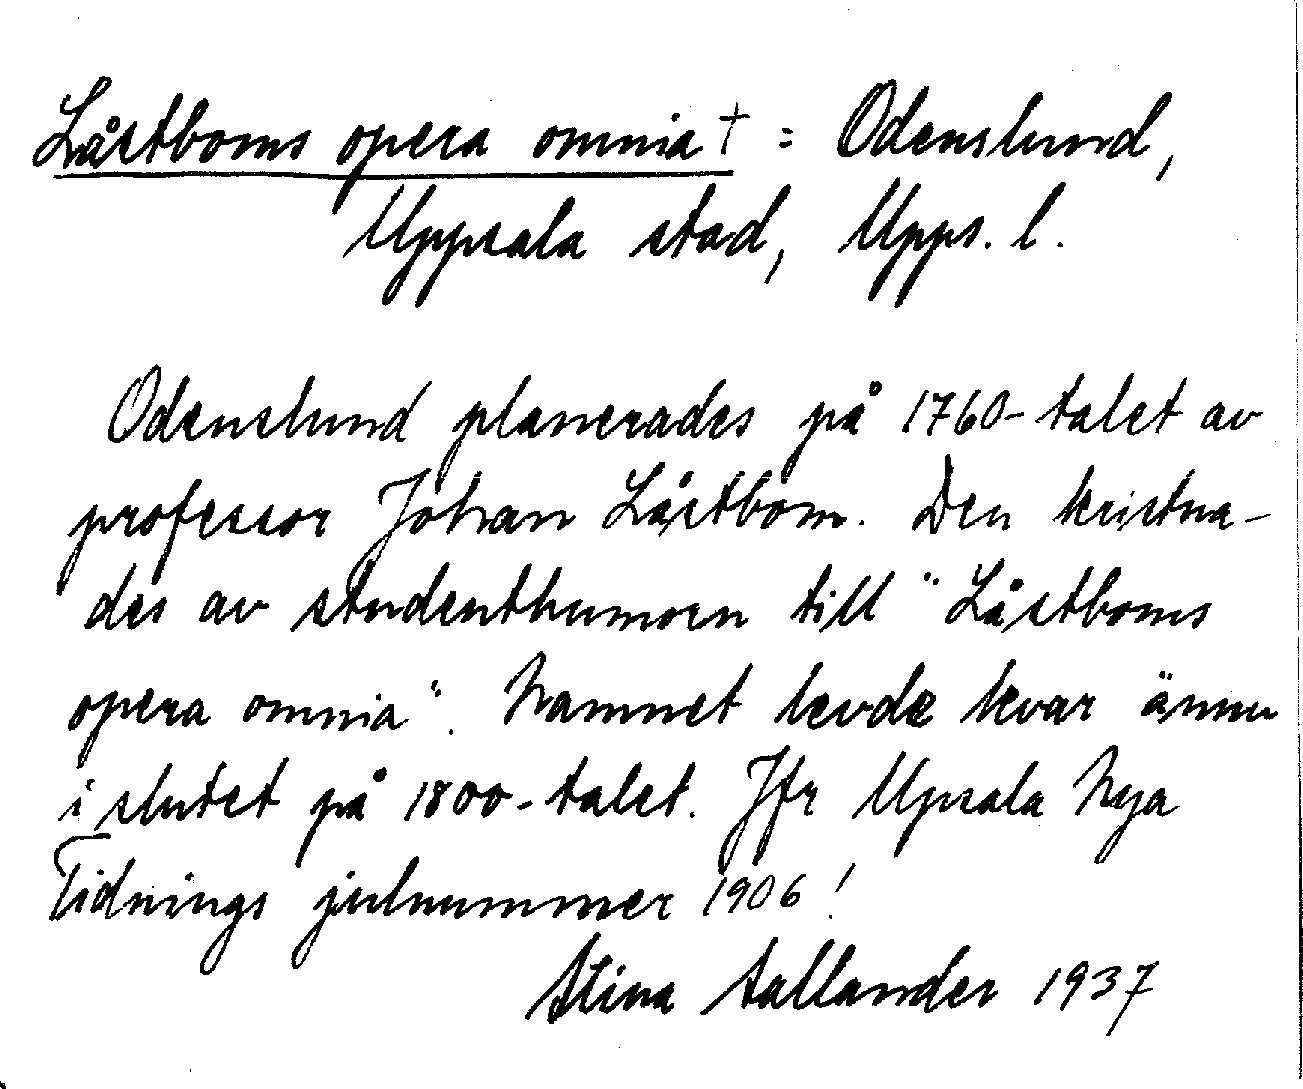 Låstboms opera omnia † = Odenslund,
Uppsala stad, Upps. l.
Odenslund planerades på 1760-talet av
professor Johan Låstbom. Den kristna-
des av studenthumorn till "Låstboms
opera omnia". Namnet levde kvar ännu
i slutet på 1800-talet. Jfr Upsala Nya
Tidnings julnummer 1906!
Stina Sallander 1937